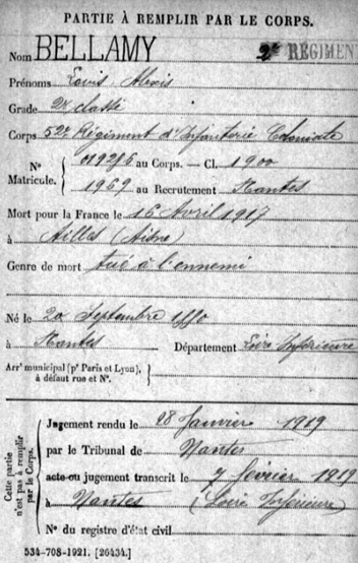 PARTIE À REMPLIR PAR LE CORPS.
Nom BELLAMY 2e RÉGIMENT
Prénoms Louis Alexis
Grade 2e classe
Corps 52e Régiment d'Infanterie Coloniale
N° Matricule. { 019286 au Corps. — Cl. 1900
1969 au Recrutement Nantes
Mort pour la France le 16 Avril 1917
à Ailles (Aisne)
Genre de mort tué à l'ennemi
Né le 20 Septembre 1880
à Nantes Département Loire Inférieure
Arrt municipal (pr Paris et Lyon),
à défaut rue et N°.
Cette partie n'est pas à remplir par le Corps.
Jugement rendu le 28 Janvier 1919
par le Tribunal de Nantes
acte ou jugement transcrit le 7 février 1919
à Nantes (Loire Inférieure)
N° du registre d'état civil
534-708-1921. [26434.]